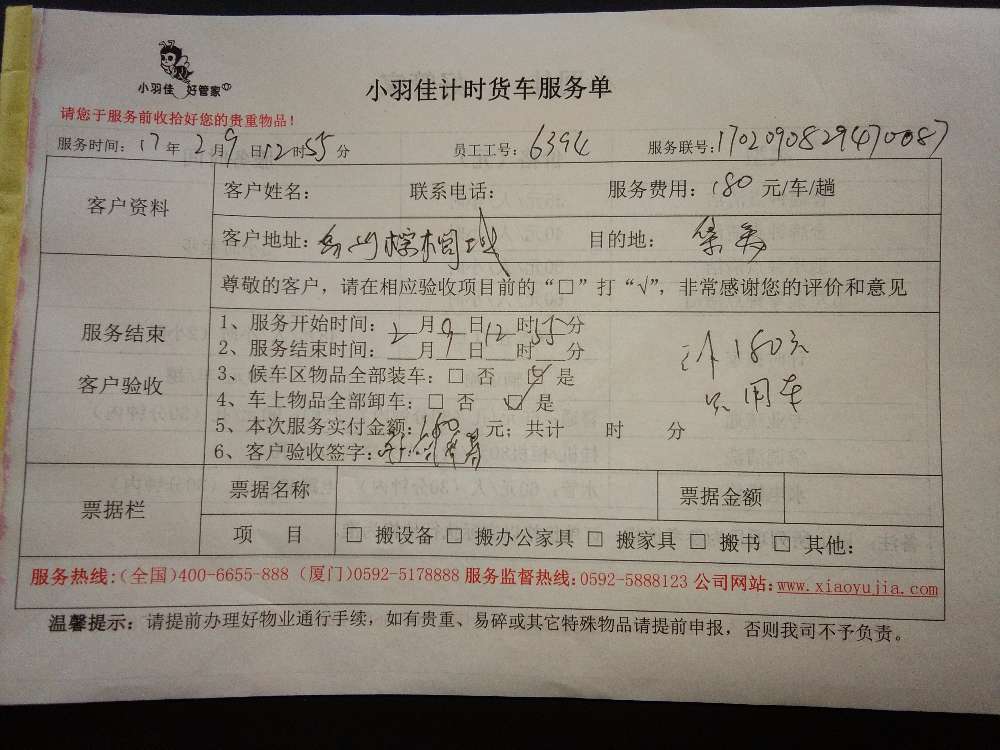 小羽佳 好管家
小羽佳计时货车服务单
请您于服务前收拾好您的贵重物品！
服务时间：17年2月9日12时55分 员工工号：6394 服务联号：1702090829470087
客户资料
客户姓名： 联系电话： 服务费用：180元/车/趟
客户地址： 棕榈城 目的地：集美
服务结束
客户验收
尊敬的客户，请在相应验收项目前的“□”打“√”，非常感谢您的评价和意见
1、服务开始时间：2月9日12时55分
2、服务结束时间：___月___日___时___分
3、候车区物品全部装车：□ 否 ☑ 是
4、车上物品全部卸车：□ 否 ☑ 是
5、本次服务实付金额：180元；共计 时 分
6、客户验收签字：
180元
只用车
票据栏
票据名称 票据金额
项 目 □ 搬设备 □ 搬办公家具 □ 搬家具 □ 搬书 □ 其他：
服务热线：（全国）400-6655-888（厦门）0592-5178888 服务监督热线：0592-5888123 公司网站：www.xiaoyujia.com
温馨提示：请提前办理好物业通行手续，如有贵重、易碎或其它特殊物品请提前申报，否则我司不予负责。